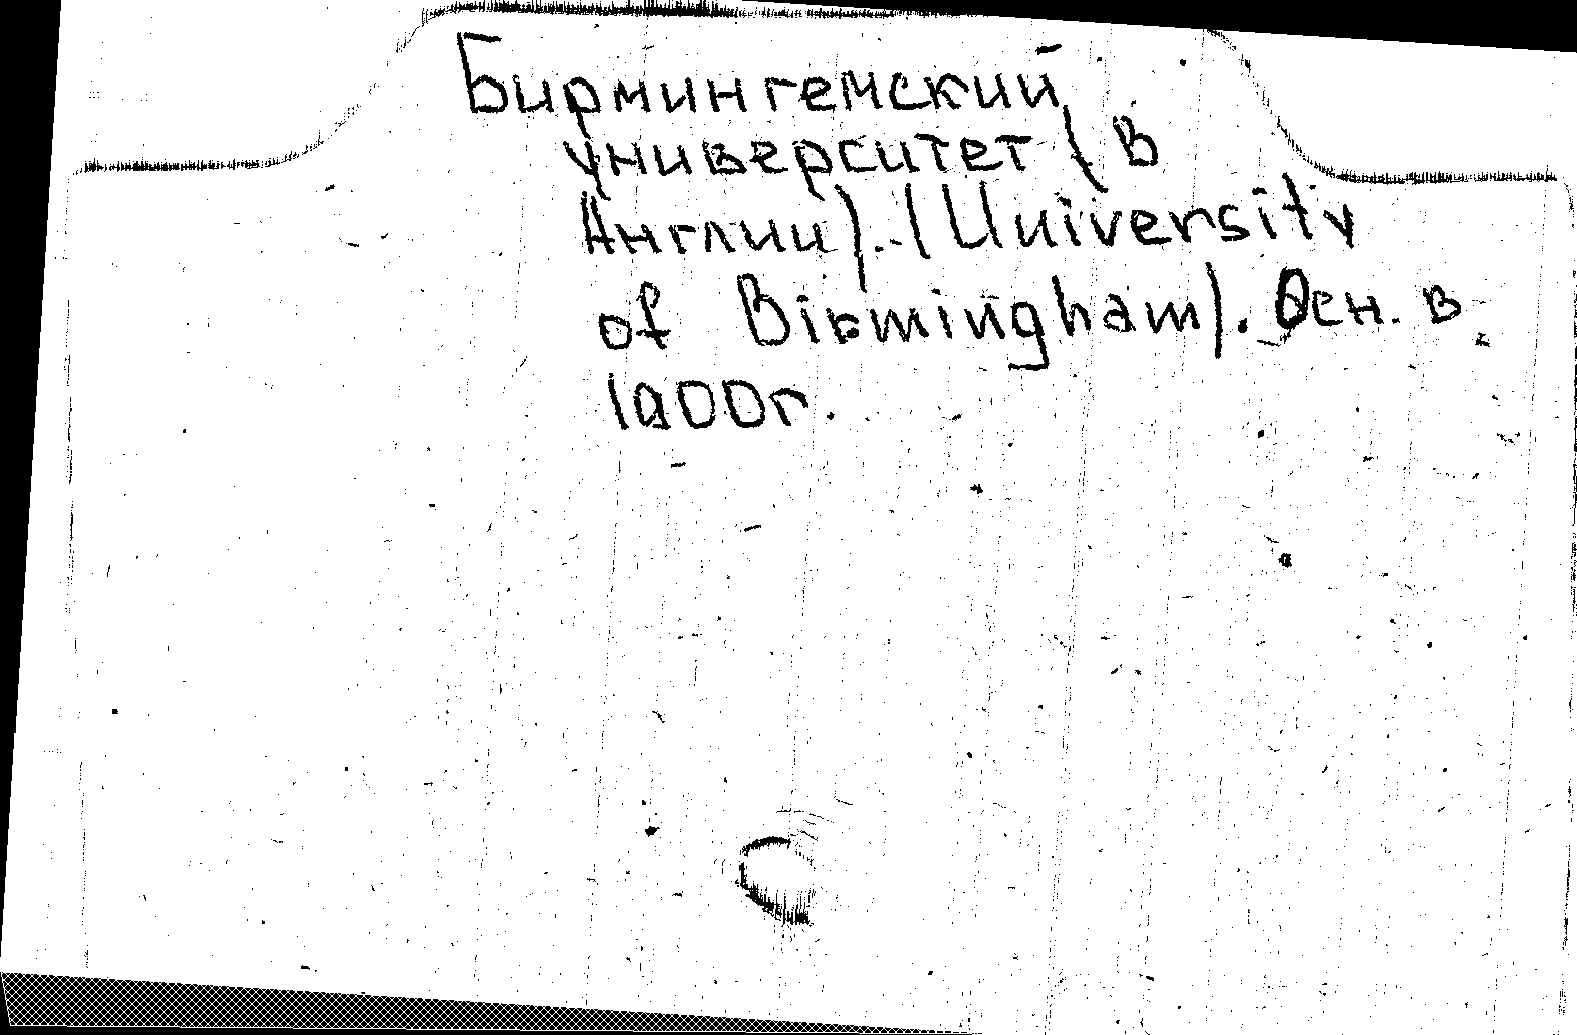 Бирмингемский
университет (в
Англии).-(University
of Birmingham). Осн. в
1900г.